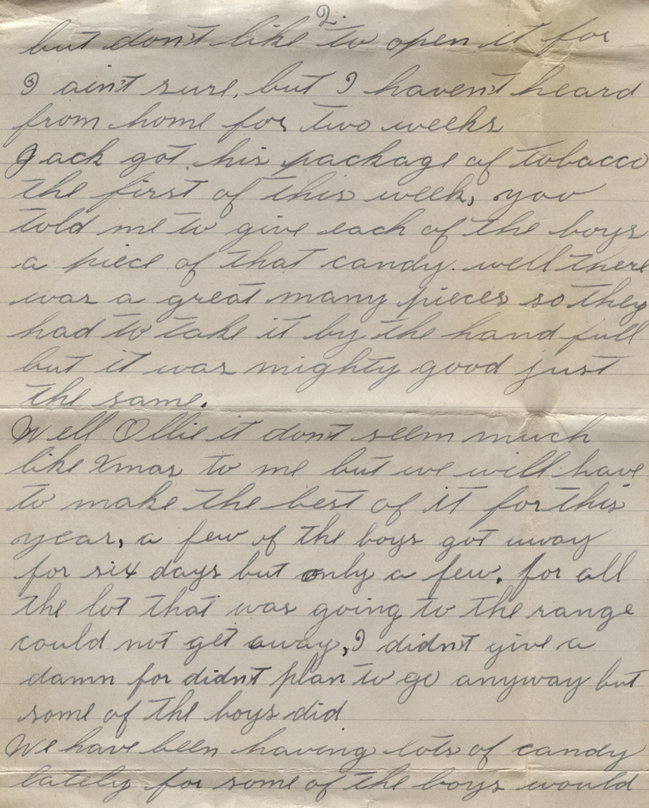 2.
but don't like to open it for
I ain't sure, but I haven't heard
from home for two weeks
Jack got his package of tobacco
the first of this week, you
told me to give each of the boys
a piece of that candy. well there
was a great many pieces so they
had to take it by the hand full
but it was mighty good just
the same.
Well Ollie it don't seem much
like Xmas to me but we will have
to make the best of it for this
year, a few of the boys got away
for six days but only a few. for all
the lot that was going to the range
could not get away, I didn't give a
damn for didn't plan to go anyway but
some of the boys did
We have been having lots of candy
lately for some of the boys would